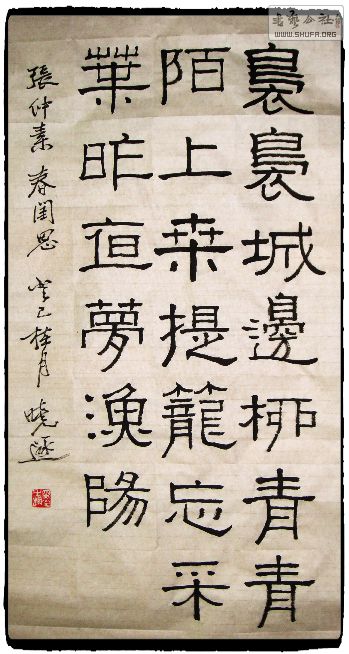 書藝公社
WWW.SHUFA.ORG
裊裊城邊柳青青
陌上桒提籠忘采
葉昨亱夢漁陽
張仲素 春閨思 癸巳桂月 曉